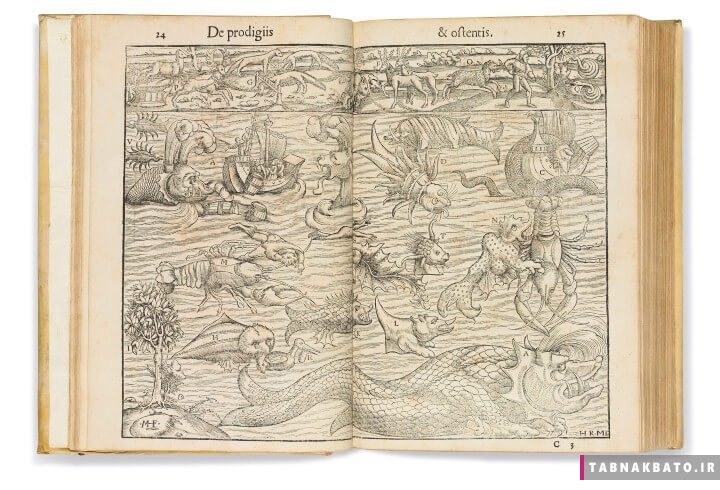 24 De prodigiis
& ostentis. 25
A
D
C
N
H
L
MHF
HRMD
C 3
TABNAKBATO.IR